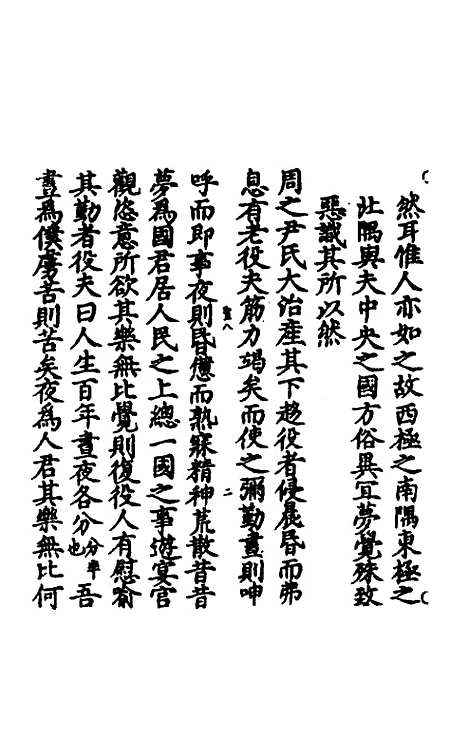 然耳惟人亦如之故西極之南隅東極之
北隅與夫中央之國方俗異冝夢覺殊致
惡識其所以然
周之尹氏大治產其下趍役者侵晨昏而弗
息有老役夫筋力竭矣而使之彌勤晝則呻
呼而即事夜則昏憊而熟寐精神荒散昔昔
夢為國君居人民之上總一國之事遊宴宮
觀恣意所欲其樂無比覺則復役人有慰喻
其勤者役夫曰人生百年晝夜各分分半也吾
晝為僕虜苦則苦矣夜為人君其樂無比何